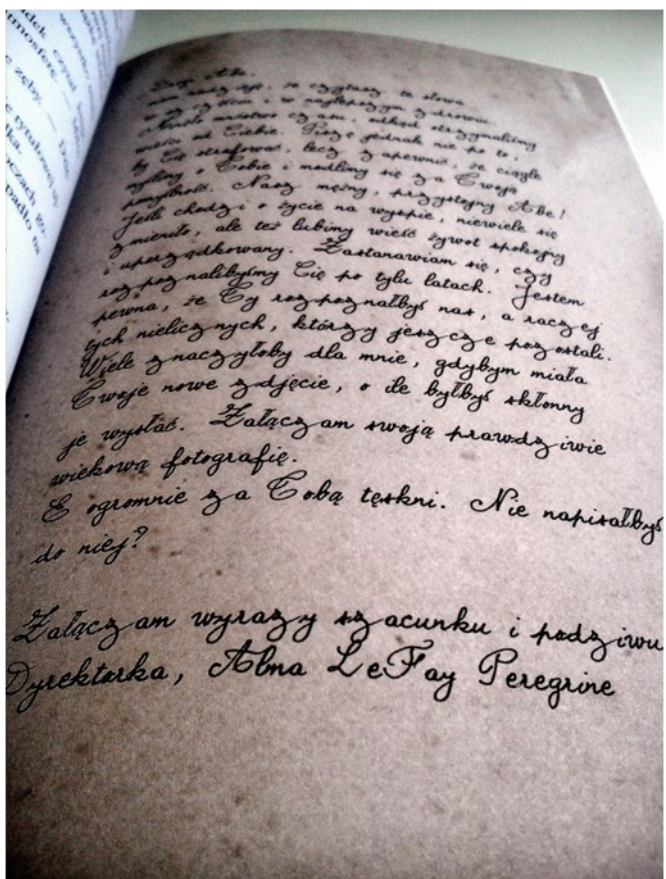 czymś
tmosferę
zęby. —
oczach go-
padło na
Drogi Abe,
mam nadzieję, że czytasz te słowa
i w najlepszym zdrowiu.
Minęło mnóstwo czasu, odkąd otrzymaliśmy
wieści od Ciebie. Piszę jednak nie po to,
by Cię strofować, lecz zapewnić, że ciągle
myślimy o Tobie i modlimy się za Twoją
pomyślność. Nasz mężny, przystojny Abe!
Jeśli chodzi o życie na wyspie, niewiele się
zmieniło, ale też lubimy wieść żywot spokojny
i uporządkowany. Zastanawiam się, czy
rozpoznalibyśmy Cię po tylu latach. Jestem
pewna, że Ty rozpoznałbyś nas, a raczej
tych nielicznych, którzy jeszcze pozostali.
Wiele znaczyłoby dla mnie, gdybym miała
Twoje nowe zdjęcie, o ile byłbyś skłonny
je wysłać. Załączam swoją prawdziwie
wiekową fotografię.
E ogromnie za Tobą tęskni. Nie napisałbyś
do niej?
Załączam wyrazy szacunku i podziwu
Dyrektorka, Alma LeFay Peregrine